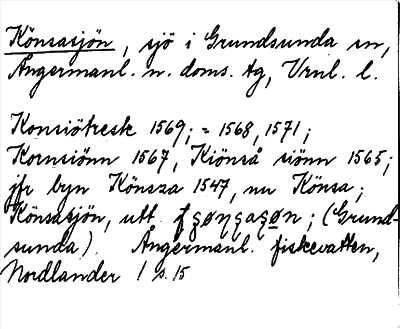 Könsasjön, sjö i Grundsunda sn,
Ångermanl. n. doms. tg, Vrnl. l.
Konsiötresk 1569; = 1568, 1571;
Kornsiönn 1567, Kiönså siönn 1565;
jfr byn Könsza 1547, nu Könsa;
Könsasjön, utt. ; (Grund-
sunda). Ångermanl. fiskevatten,
Nordlander 1 s. 15